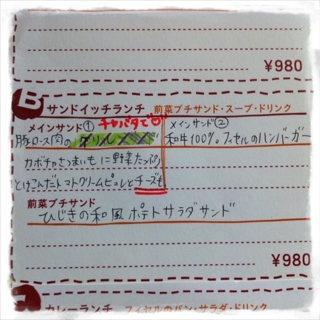 ¥980
B サンドイッチランチ 前菜プチサンド・スープ・ドリンク
メインサンド① チャバタで
豚ロース肉のグリル
カボチャのさつまいもに野菜たっぷり
とけこんだトマトクリームピューレとチーズも
メインサンド②
和牛100%フィセルのハンバーガー
前菜プチサンド
ひじきの和風ポテトサラダサンド
¥980
カレーランチ フィセルのパン・サラダ・ドリンク